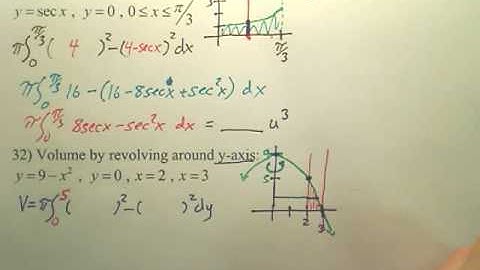 y = sec x , y = 0 , 0 ≤ x ≤ π/3
π∫₀^{π/3} (  4  )² − (4-secx)² dx
π∫₀^{π/3} 16 − (16 − 8secx + sec²x) dx
π∫₀^{π/3} 8secx − sec²x dx = ____ u³
32) Volume by revolving around y-axis:
y = 9 − x² , y = 0 , x = 2 , x = 3
V = π∫₀^5 (    )² − (    )² dy
π/3
9
5
2
3